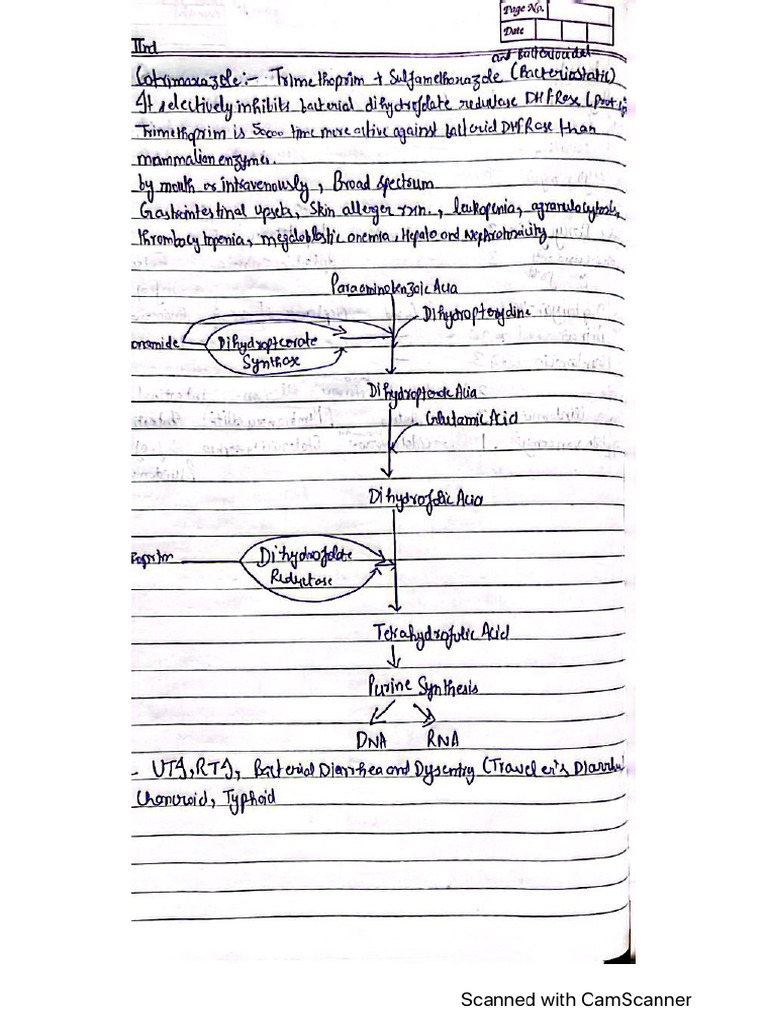 Page No.
Date
IInd
and Bacteriocidal
Cotrimoxazole:- Trimethoprim + Sulfamethoxazole (Bacteriostatic)
It selectively inhibits bacterial dihydrofolate reductase DHFRase
Trimethoprim is 50000 time more active against bacterial DHFRase than
mammalian enzymes.
by mouth or intravenously, Broad spectrum
Gastrointestinal upsets, Skin allerger rxn., leukopenia, agranulocytosis,
thrombocytopenia, megaloblastic anemia, Hepato and Nephrotoxicity
Paraaminobenzoic Acid
Dihydropterydine
onamide
Dihydropteorate
Synthase
Dihydropteroic Acid
Glutamic Acid
Dihydrofolic Acid
Dihydrofolate
Reductase
Tetrahydrofolic Acid
Purine Synthesis
DNA RNA
- UTI, RTI, Bacterial Diarrhea and Dysentry (Traveler's Diarrhe
Chancroid, Typhoid
Scanned with CamScanner